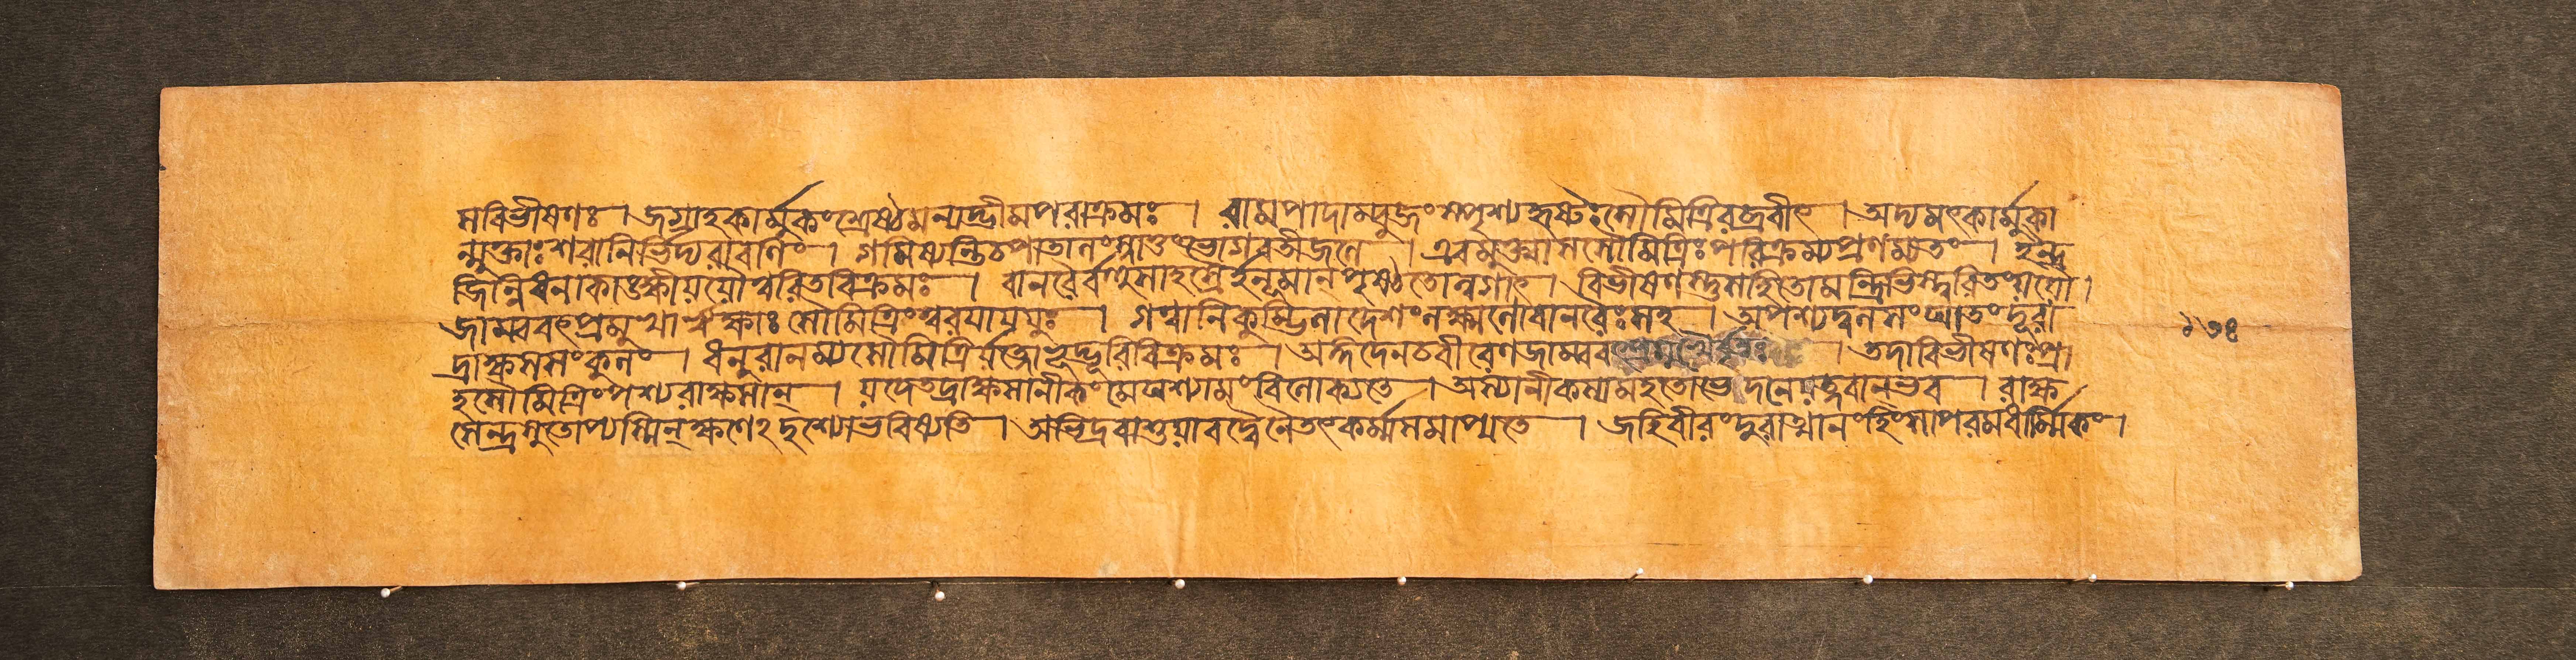 সবিভীষণঃ । জগ্রাহকার্ম্মুকংশ্রেষ্ঠমন্যদ্ভীমপরাক্রমঃ । রামপাদাম্বুজংসংপৃশ্যহৃষ্টঃসৌমিত্রিরব্রবীৎ । অদ্যমৎকার্ম্মুকা
ন্মুক্তাঃশরানির্ভিদ্যরাবণিং । গমিষ্যন্তিঠপাতালংস্নাতুংভোগবতীজলে । এবমুক্ত্বাসসৌমিত্রিঃপরিক্রম্যপ্রণম্যতং । ইন্দ্র
জিন্নিধনাকাঙ্ক্ষীযযৌত্বরিতবিক্রমঃ । বানরৈর্বহুসাহস্রৈর্হনূমানপৃষ্ঠতোন্বগাৎ । বিভীষণস্তুসহিতোমন্ত্রিভিস্ত্বরিতংযযৌ ।
জাম্ববৎপ্রমুখাঋক্ষাঃসৌমিত্রিংত্বরযান্বযুঃ । গত্বানিকুম্ভিলাদেশংলক্ষ্মণোবানরৈঃসহ । অপশ্যদ্বলসংঘাতংদূরা
দ্রাক্ষসসংকুলং । ধনুরানম্যসৌমিত্রির্যত্তোঽভূদ্ভূরিবিক্রমঃ । অঙ্গদেনঠবীরেণজাম্ববৎপ্রমুখৈর্বৃতঃ । তদাবিভীষণঃপ্রা
হসৌমিত্রিংপশ্যরাক্ষসান্ । যদেতদ্রাক্ষসানীকংমেঘশ্যামংবিলোক্যতে । অস্যানীকস্যমহতোভেদনেযত্নবানভব । রাক্ষ
সেন্দ্রসুতোপ্যস্মিন্ক্ষণেঽদৃশ্যোভবিষ্যতি । অভিদ্রবাশুযাবদ্বৈনৈতৎকর্ম্মসমাপ্যতে । জহিবীরংদুরাত্মানংহিংসাপরমধার্ম্মিকং ।